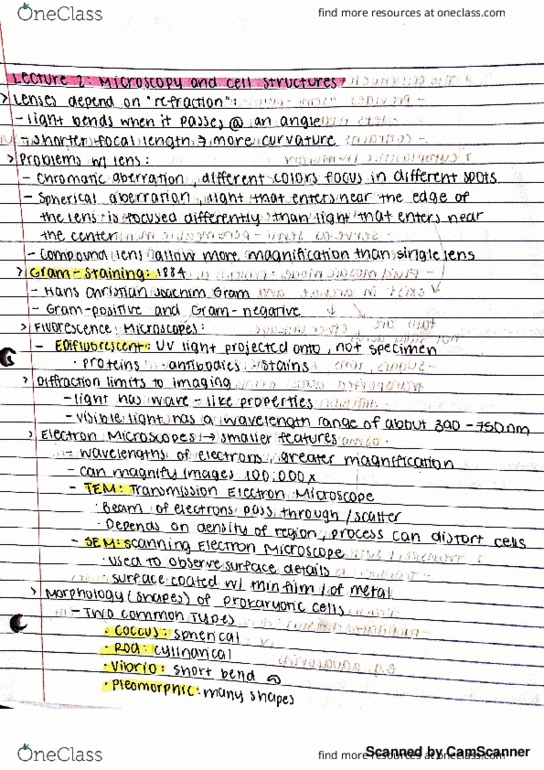 OneClass
find more resources at oneclass.com
Lecture 2: Microscopy and cell structures
> Lenses depend on "refraction":
- light bends when it passes @ an angle
- shorter focal length → more curvature
> Problems w/ lens:
- Chromatic aberration, different colors focus in different spots
- Spherical aberration, light that enters near the edge of
the lens is focused differently than light that enters near
the center
- Compound lens allow more magnification than single lens
> Gram-Staining: 1884
- Hans Christian Joachim Gram
- Gram-positive and Gram-negative
> Fluorescence Microscopes:
- Epifluorescent: UV light projected onto, not specimen
· proteins antibodies stains
> Diffraction limits to imaging
- light has wave-like properties
- visible light has a wavelength range of about 390-750nm
> Electron Microscopes → smaller features
- wavelengths of electrons, greater magnification
- can magnify images 100,000x
- TEM: Transmission Electron Microscope
· Beam of electrons pass through/scatter
· Depends on density of region, process can distort cells
- SEM: Scanning Electron Microscope
· used to observe surface details
· surface coated w/ thin film of metal
> Morphology (shapes) of prokaryotic cells
- Two common types
· Coccus: spherical
· Rod: cylindrical
· Vibrio: short bend
· Pleomorphic: many shapes
OneClass
find more resources at oneclass.com
Scanned by CamScanner